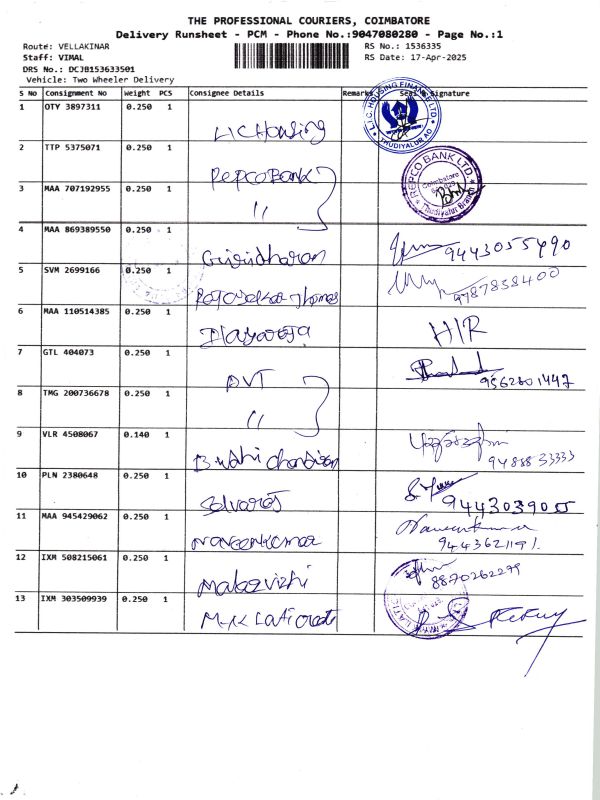 THE PROFESSIONAL COURIERS, COIMBATORE
Delivery Runsheet - PCM - Phone No.:9047080280 - Page No.:1
Route: VELLAKINAR
RS No.: 1536335
Staff: VIMAL
RS Date: 17-Apr-2025
DRS No.: DCJB153633501
Vehicle: Two Wheeler Delivery
S No Consignment No Weight PCS Consignee Details Remarks Signature
1 OTY 3897311 0.250 1 LIC Housing
L.I.C. HOUSING FINANCE LTD. THUDIYALUR AO
2 TTP 5375071 0.250 1 Repco Bank
REPCO BANK LTD. Coimbatore Thudiyalur Branch
3 MAA 707192955 0.250 1 "
4 MAA 869389550 0.250 1 Giridharan 9443055490
5 SVM 2699166 0.250 1 9787858400
6 MAA 110514385 0.250 1 Ilayaraja H/R
7 GTL 404073 0.250 1 9562801447
8 TMG 200736678 0.250 1 "
9 VLR 4508067 0.140 1
10 PLN 2380648 0.250 1 Selvaraj
11 MAA 945429062 0.250 1 Naveenkumar Naveenkumar
12 IXM 508215061 0.250 1 Malarvizhi 8870262299
13 IXM 303509939 0.250 1